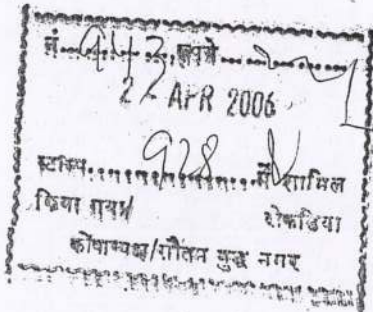 नं. 943 रूपये
22 APR 2006
स्टाम्प 928 में शामिल
किया गया रोकडिया
कोषाध्यक्ष/गौतम बुद्ध नगर